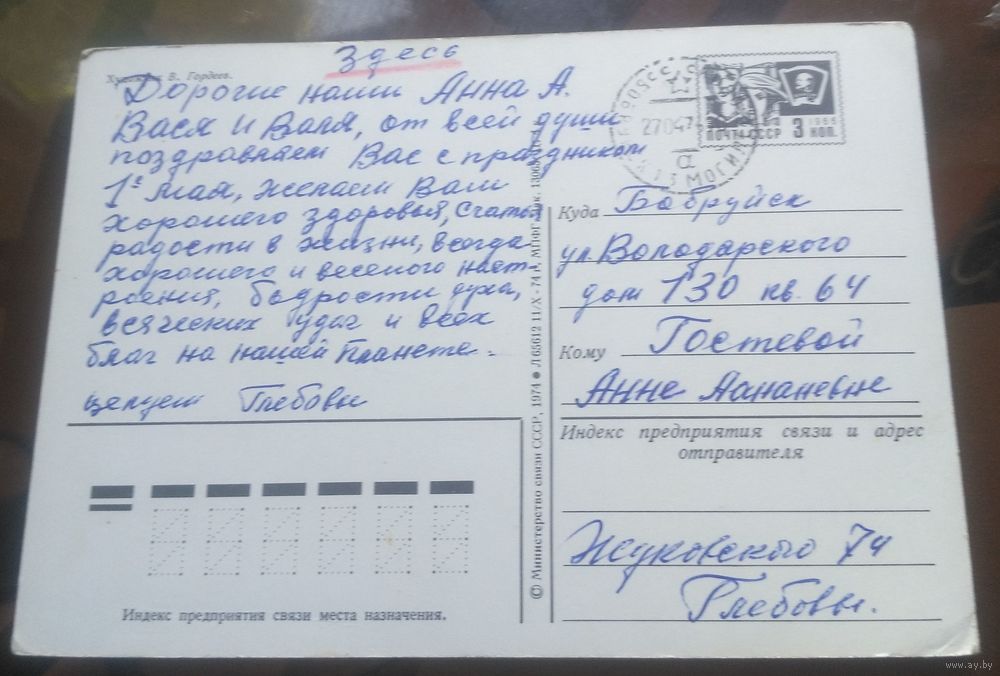 Здесь
Художник В. Гордеев.
Дорогие наши Анна А.
Вася и Валя, от всей души
поздравляем Вас с праздником
1е Мая, желаем Вам
хорошего здоровья, счастья
радости в жизни, всегда
хорошего и веселого наст-
роения, бодрости духа,
всяческих удач и всех
благ на нашей планете.
целуем Глебовы
ПОЧТА СССР 3 КОП.
1966
2704
а
Куда Бобруйск
ул. Володарского
дом 130 кв. 64
Кому Гостевой
Анне
Индекс предприятия связи и адрес
отправителя
Жуковского 74
Глебовы.
© Министерство связи СССР, 1974 ● Л 65612 11/X - 74 г. МПФГ
Индекс предприятия связи места назначения.
www.ay.by